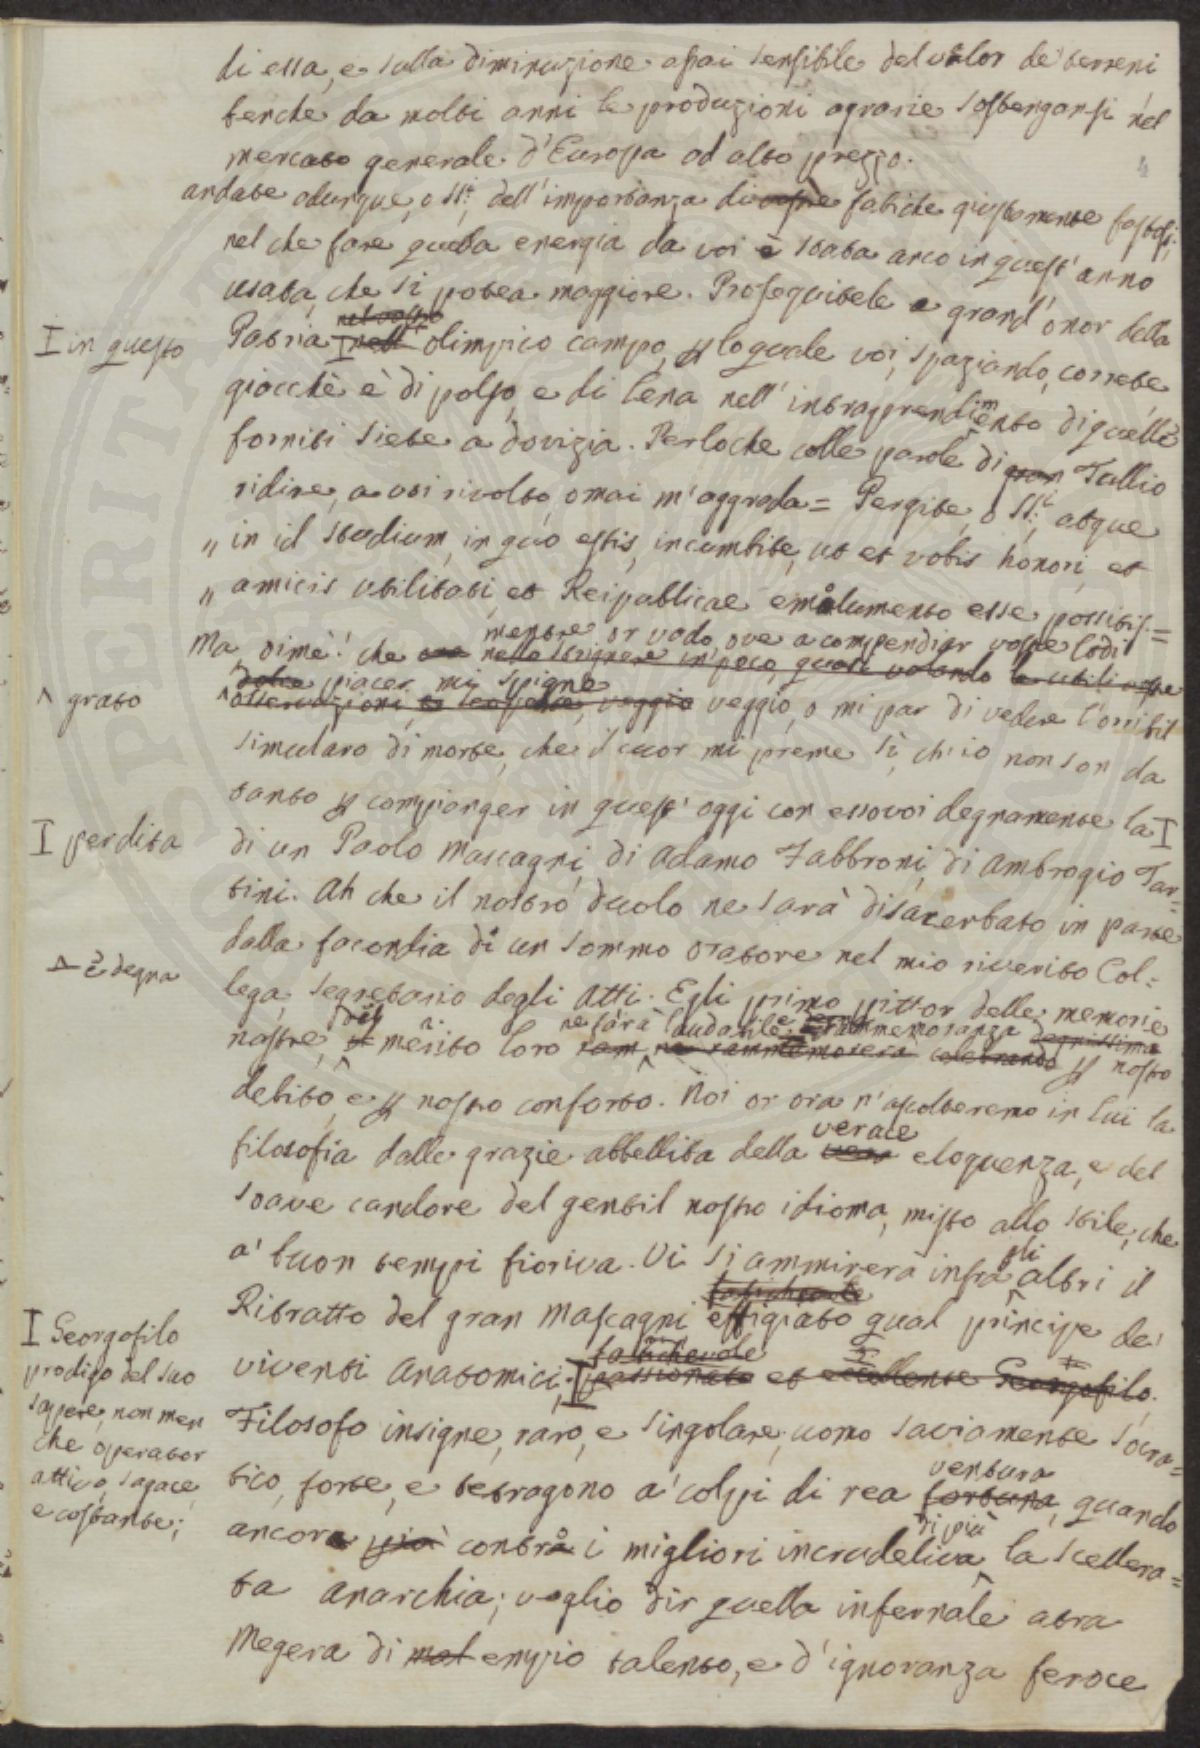 di essa, e sulla diminuzione assai sensibile del valor de' terreni
benche da molti anni le produzioni agrarie sostengansi nel
mercato generale d'Europa ad alto prezzo.
andate adunque, o SS.i, dell'importanza di vostre fatiche giustamente fastosi;
nel che fare quella energia da voi è stata anco in quest'anno
usata, che si potea maggiore. Proseguitele a grand'onor della
nel vostro
I in questo
Patria I nell' olimpico campo, p lo quale voi, spaziando, correte
giocchè è di polso, e di lena nell'intraprendimento di quelle
forniti siete a dovizia. Perloche colle parole di gran Tullio
ridire, a voi rivolto, omai m'aggrada = Pergite, o SS.i, atque
" in id studium, in quo estis, incumbite, ut et vobis honori, et
" amicis utilitati, et Reipublicae emolumento esse possitis. =
mentre or vado, ove a compendiar vostre lodi
Ma, oimè! che nello strignere in poco, quasi volando le utili vostre
dolce piacer mi spigne
^ grato
^ osservazioni, e scoperte, veggio veggio, o mi par di vedere l'orribil
simulacro di morte, che il cuor mi preme sì, ch'io non son da
tanto p compianger in quest'oggi con essovoi degnamente la I
I perdita
di un Paolo Mascagni, di Adamo Fabbroni, di Ambrogio Tar=
tini. Ah che il nostro duolo ne sarà disacerbato in parte
dalla facondia di un sommo oratore nel mio riverito Col=
è degna
lega, Segretario degli Atti. Egli primo pittor delle memorie
del ne sarà laudabile rammemoranza degnissima
nostre, il merito loro rammemorerà celebrando p nostro
debito, e p nostro conforto. Noi or ora n'ascolteremo in lui la
verace
filosofia dalle grazie abbellita della vera eloquenza, e del
soave candore del gentil nostro idioma, misto allo stile, che
gli
a' buon tempi fioriva. Vi si ammirerà infra altri il
Ritratto del gran Mascagni effigiato qual principe de'
fatichevole
I Georgofilo
prodigo del suo
sapere, non men
che operator
attivo, sagace,
e costante;
viventi Anatomici; I passionato et eccellente Georgofilo.
Filosofo insigne, raro, e singolare; uomo saviamente Socra=
ventura
tico, forte, e tetragono a' colpi di rea fortuna, quando
di più
ancora più contra i migliori incrudeliva la scellera=
ta anarchia; voglio dir quella infernale atra
Megera di mal empio talento, e d'ignoranza feroce